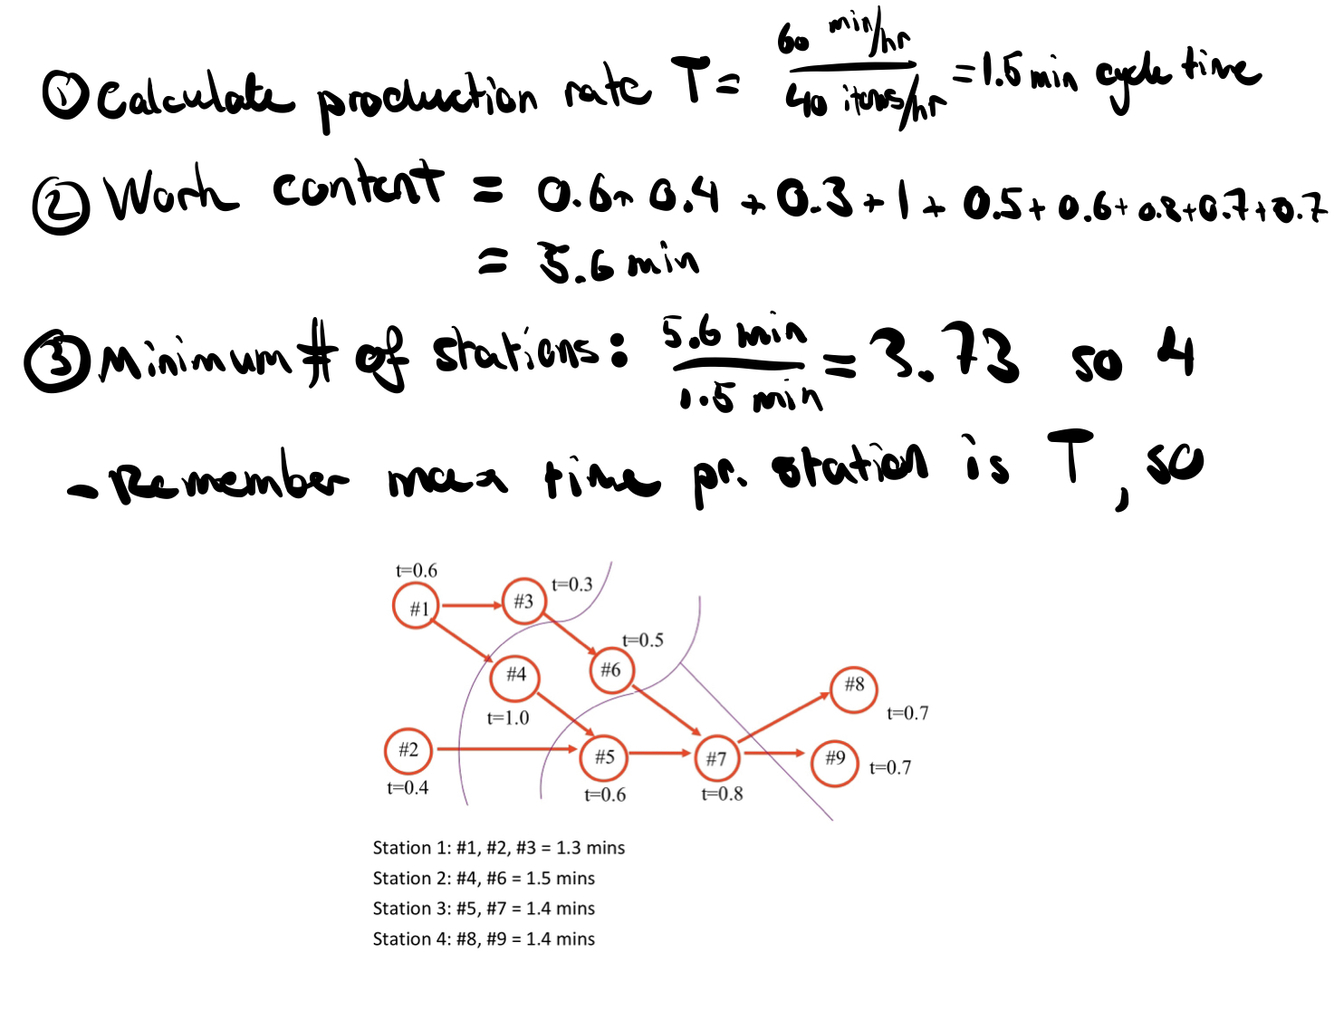 ① Calculate production rate T = 60 min/hr / 40 items/hr = 1.5 min cycle time
② Work content = 0.6+ 0.4 + 0.3 + 1 + 0.5 + 0.6 + 0.8 + 0.7 + 0.7
= 5.6 min
③ Minimum # of stations: 5.6 min / 1.5 min = 3.73 so 4
- Remember max time pr. station is T, so
t=0.6
#1
#3
t=0.3
t=0.5
#6
#4
t=1.0
#8
t=0.7
#2
t=0.4
#5
t=0.6
#7
t=0.8
#9
t=0.7
Station 1: #1, #2, #3 = 1.3 mins
Station 2: #4, #6 = 1.5 mins
Station 3: #5, #7 = 1.4 mins
Station 4: #8, #9 = 1.4 mins